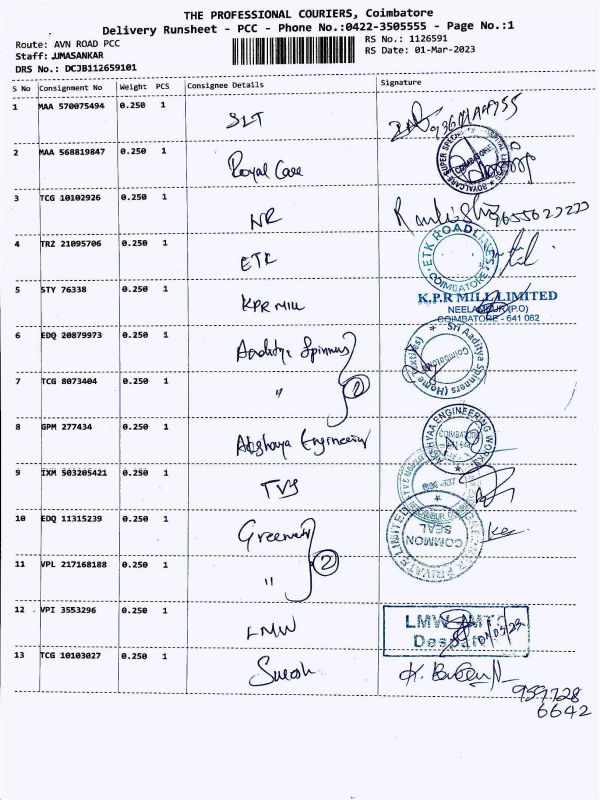 THE PROFESSIONAL COURIERS, Coimbatore
Delivery Runsheet - PCC - Phone No.:0422-3505555 - Page No.:1
Route: AVN ROAD PCC
RS No.: 1126591
Staff: JJMASANKAR
RS Date: 01-Mar-2023
DRS No.: DCJB112659101
S No Consignment No Weight PCS Consignee Details Signature
1 MAA 570075494 0.250 1
2 MAA 568819847 0.250 1 Royal Care
3 TCG 10102926 0.250 1 NR
4 TRZ 21095706 0.250 1 ETK ETK ROADLINES COIMBATORE
5 STY 76338 0.250 1 KPR MILL K.P.R MILL LIMITED
NEELAMBUR (P.O)
COIMBATORE - 641 062
6 EDQ 20879973 0.250 1 Aaditya Spinners Sri Aaditya Spinners (Home Textiles) Coimbatore
7 TCG 8073404 0.250 1 " 2
8 GPM 277434 0.250 1 Akshaya Engineering AKSHYAA ENGINEERING WORKS COIMBATORE
9 IXM 503205421 0.250 1 TVS
10 EDQ 11315239 0.250 1 PRIVATE LIMITED COMMON SEAL
11 VPL 217168188 0.250 1 " 2
12 VPI 3553296 0.250 1 LMW LMW AMTC
Despatch
13 TCG 10103027 0.250 1 Suresh
959728
6642